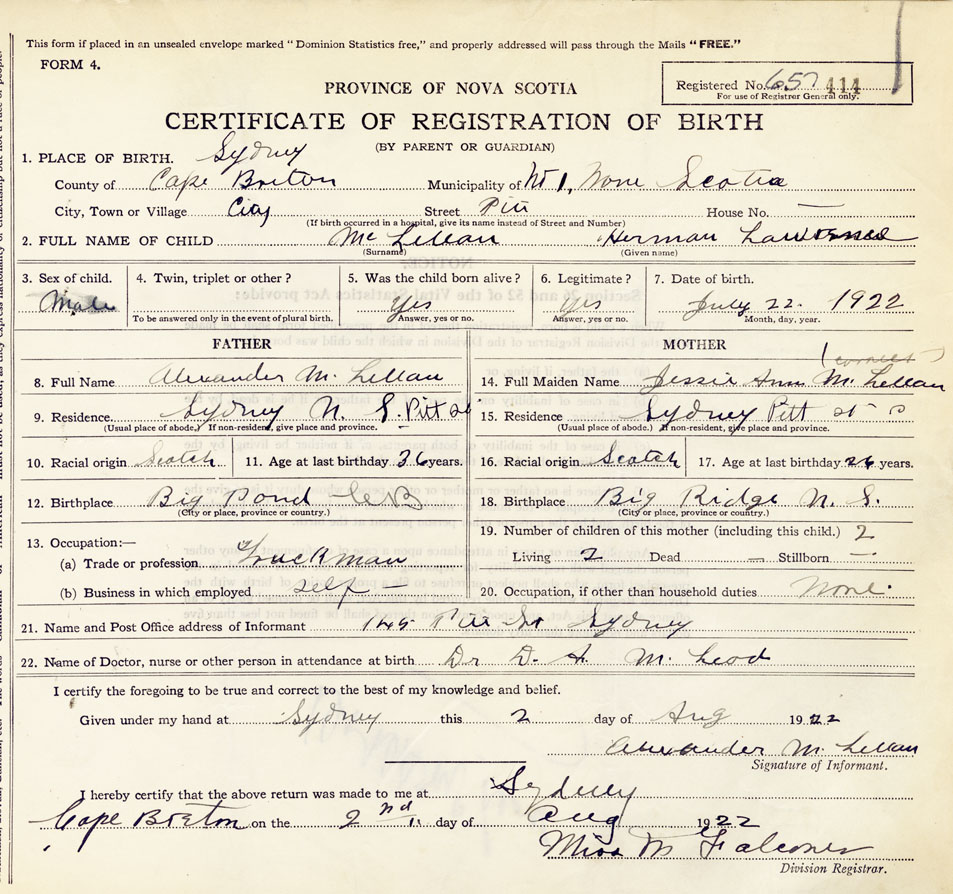 This form if placed in an unsealed envelope marked "Dominion Statistics free," and properly addressed will pass through the Mails "FREE."
FORM 4.
Registered No. 657 414
For use of Registrar General only.
PROVINCE OF NOVA SCOTIA
CERTIFICATE OF REGISTRATION OF BIRTH
(BY PARENT OR GUARDIAN)
1. PLACE OF BIRTH. Sydney
County of Cape Breton Municipality of No 1, Nova Scotia
City, Town or Village City Street Pitt House No. —
(If birth occurred in a hospital, give its name instead of Street and Number)
2. FULL NAME OF CHILD Mc Lellan Herman Lawrence
(Surname) (Given name)
3. Sex of child. 4. Twin, triplet or other? 5. Was the child born alive? 6. Legitimate? 7. Date of birth.
Male Yes Yes July 22. 1922
To be answered only in the event of plural birth. Answer, yes or no. Answer, yes or no. Month, day, year.
FATHER MOTHER
(correct)
8. Full Name Alexander Mc Lellan 14. Full Maiden Name Jessie Ann Mc Lellan
9. Residence Sydney N. S. Pitt st 15. Residence Sydney Pitt st
(Usual place of abode.) If non-resident, give place and province. (Usual place of abode.) If non-resident, give place and province.
10. Racial origin Scotch 11. Age at last birthday 36 years. 16. Racial origin Scotch 17. Age at last birthday 26 years.
12. Birthplace Big Pond CB 18. Birthplace Big Ridge N. S.
(City or place, province or country.) (City or place, province or country.)
19. Number of children of this mother (including this child.) 2
13. Occupation:—
(a) Trade or profession Truckman Living 2 Dead — Stillborn —
(b) Business in which employed self — 20. Occupation, if other than household duties None.
21. Name and Post Office address of Informant 145 Pitt St Sydney
22. Name of Doctor, nurse or other person in attendance at birth Dr D. A. Mc Leod
I certify the foregoing to be true and correct to the best of my knowledge and belief.
Given under my hand at Sydney this 2 day of Aug 1922
Alexander Mc Lellan
Signature of Informant.
I hereby certify that the above return was made to me at Sydney
Cape Breton on the 2nd day of Aug 1922
Miss M Falconer
Division Registrar.